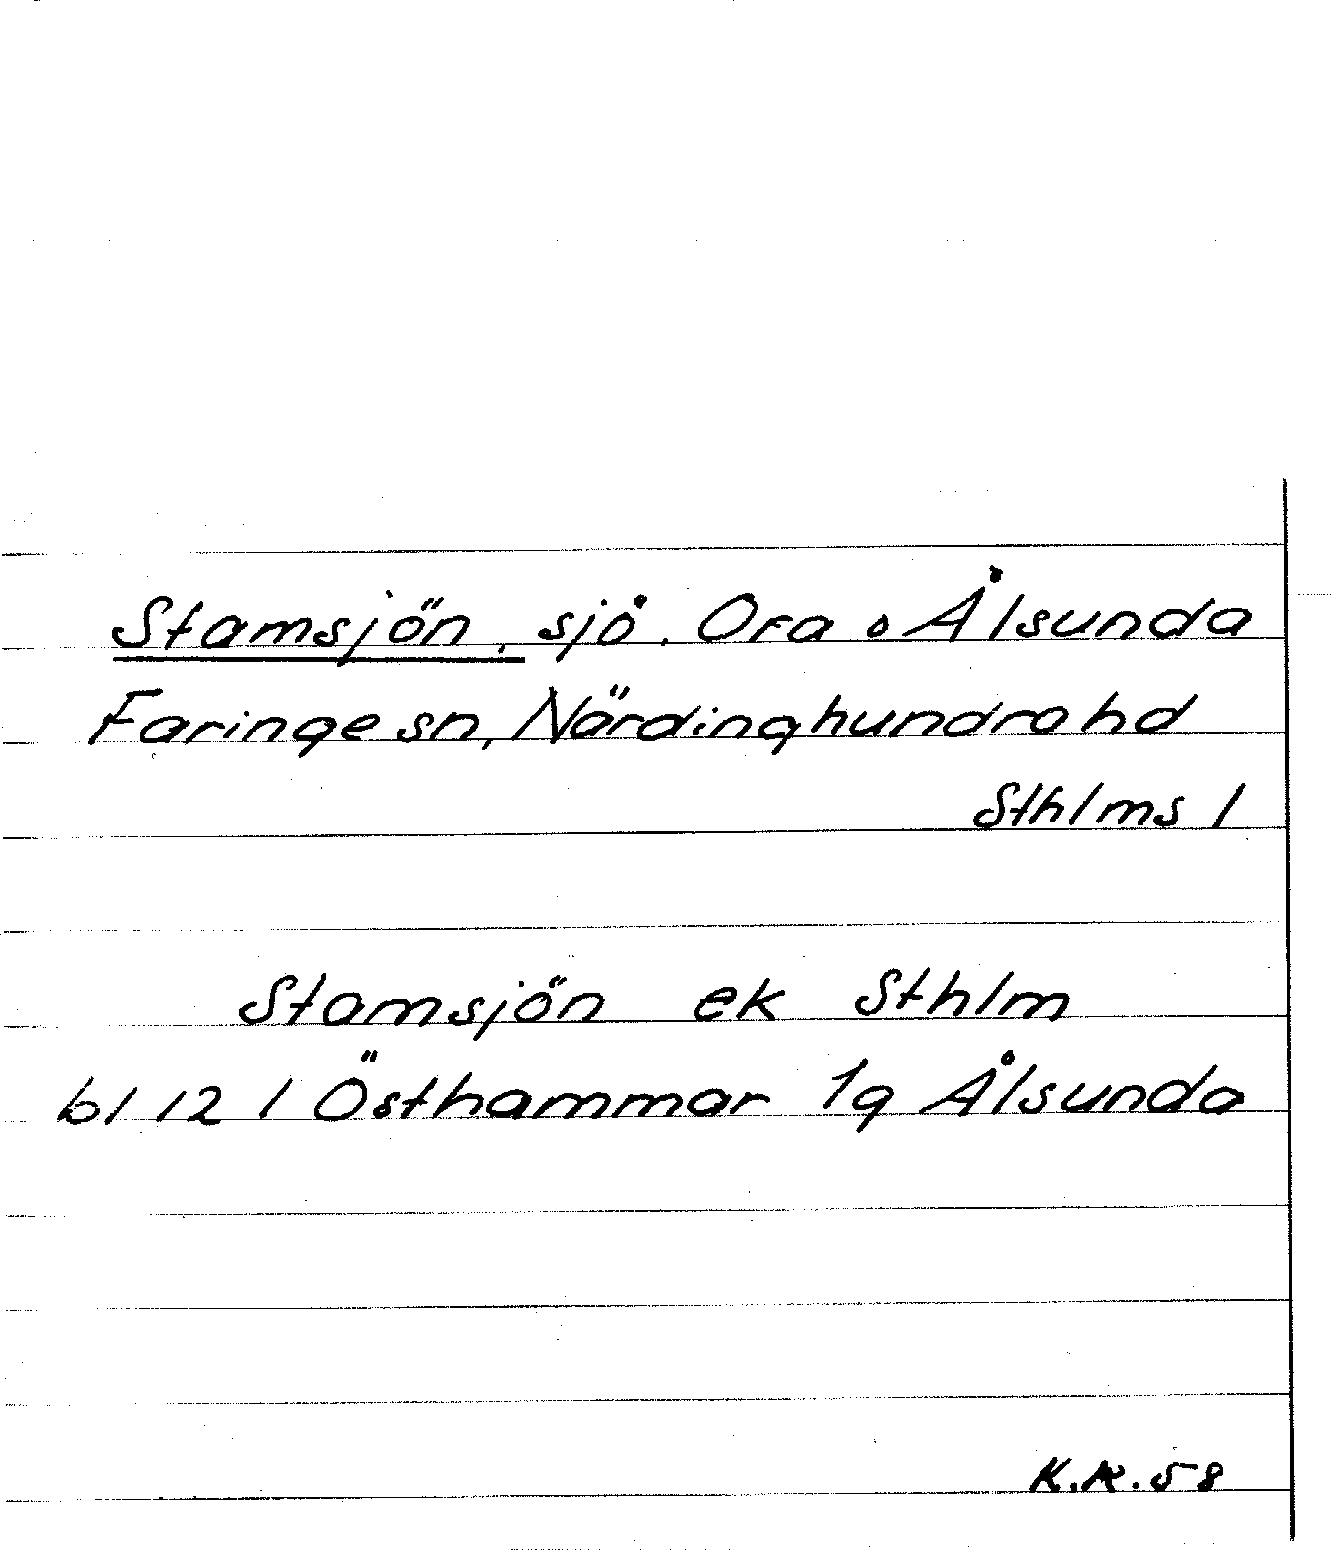 Stamsjön, sjö. Ora o Ålsunda
Faringe sn, Närdinghundra hd
Sthlms l
Stamsjön ek Sthlm
bl 12 l Östhammar lg Ålsunda
58